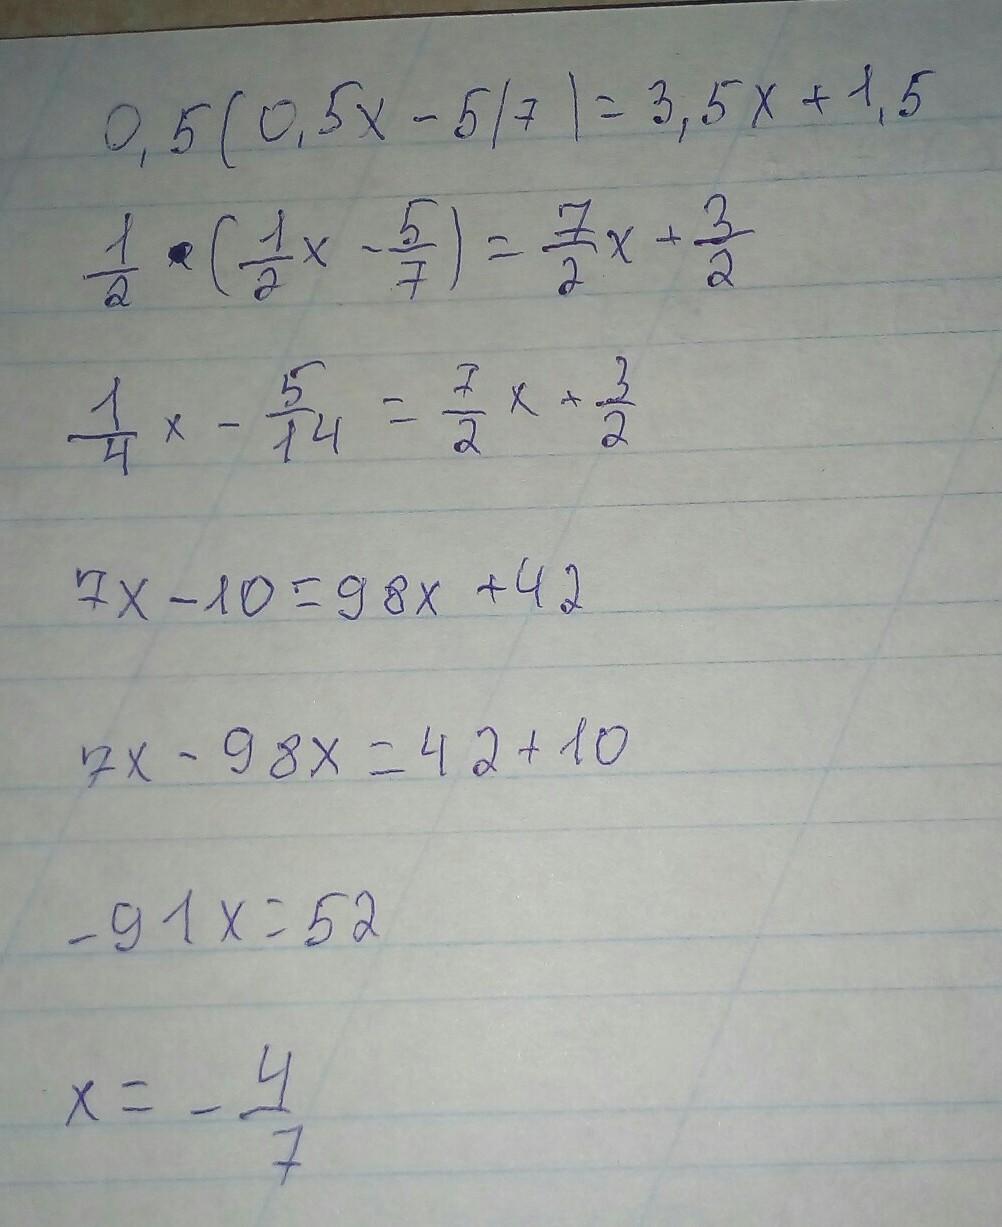 0,5(0,5x - 5/7) = 3,5x + 1,5
1/2 • (1/2x - 5/7) = 7/2x + 3/2
1/4x - 5/14 = 7/2x + 3/2
7x - 10 = 98x + 42
7x - 98x = 42 + 10
-91x = 52
x = - 4/7